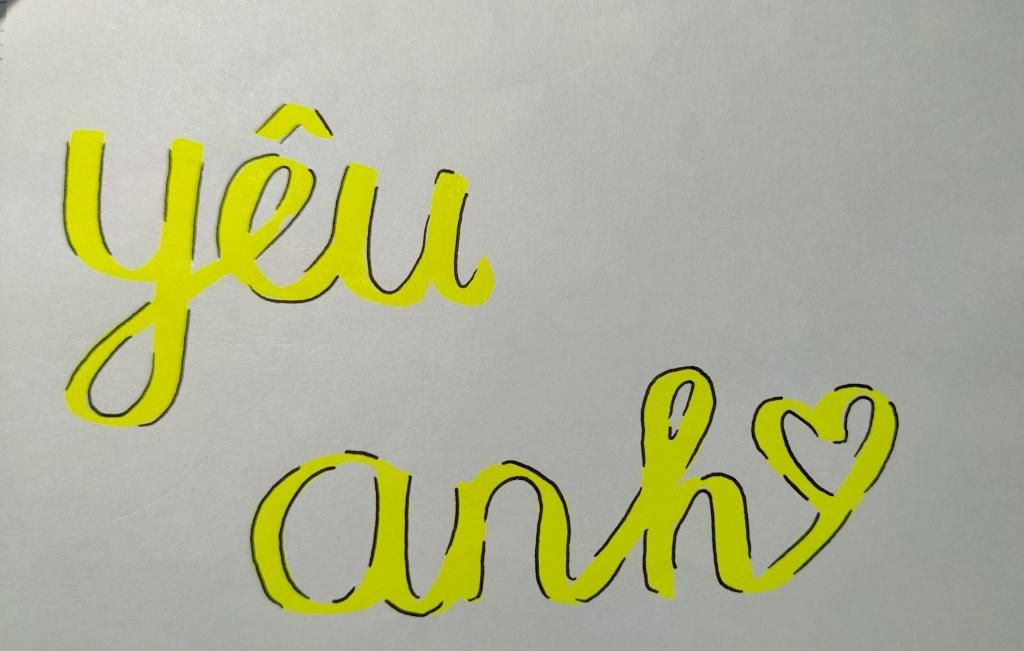 yêu
anh